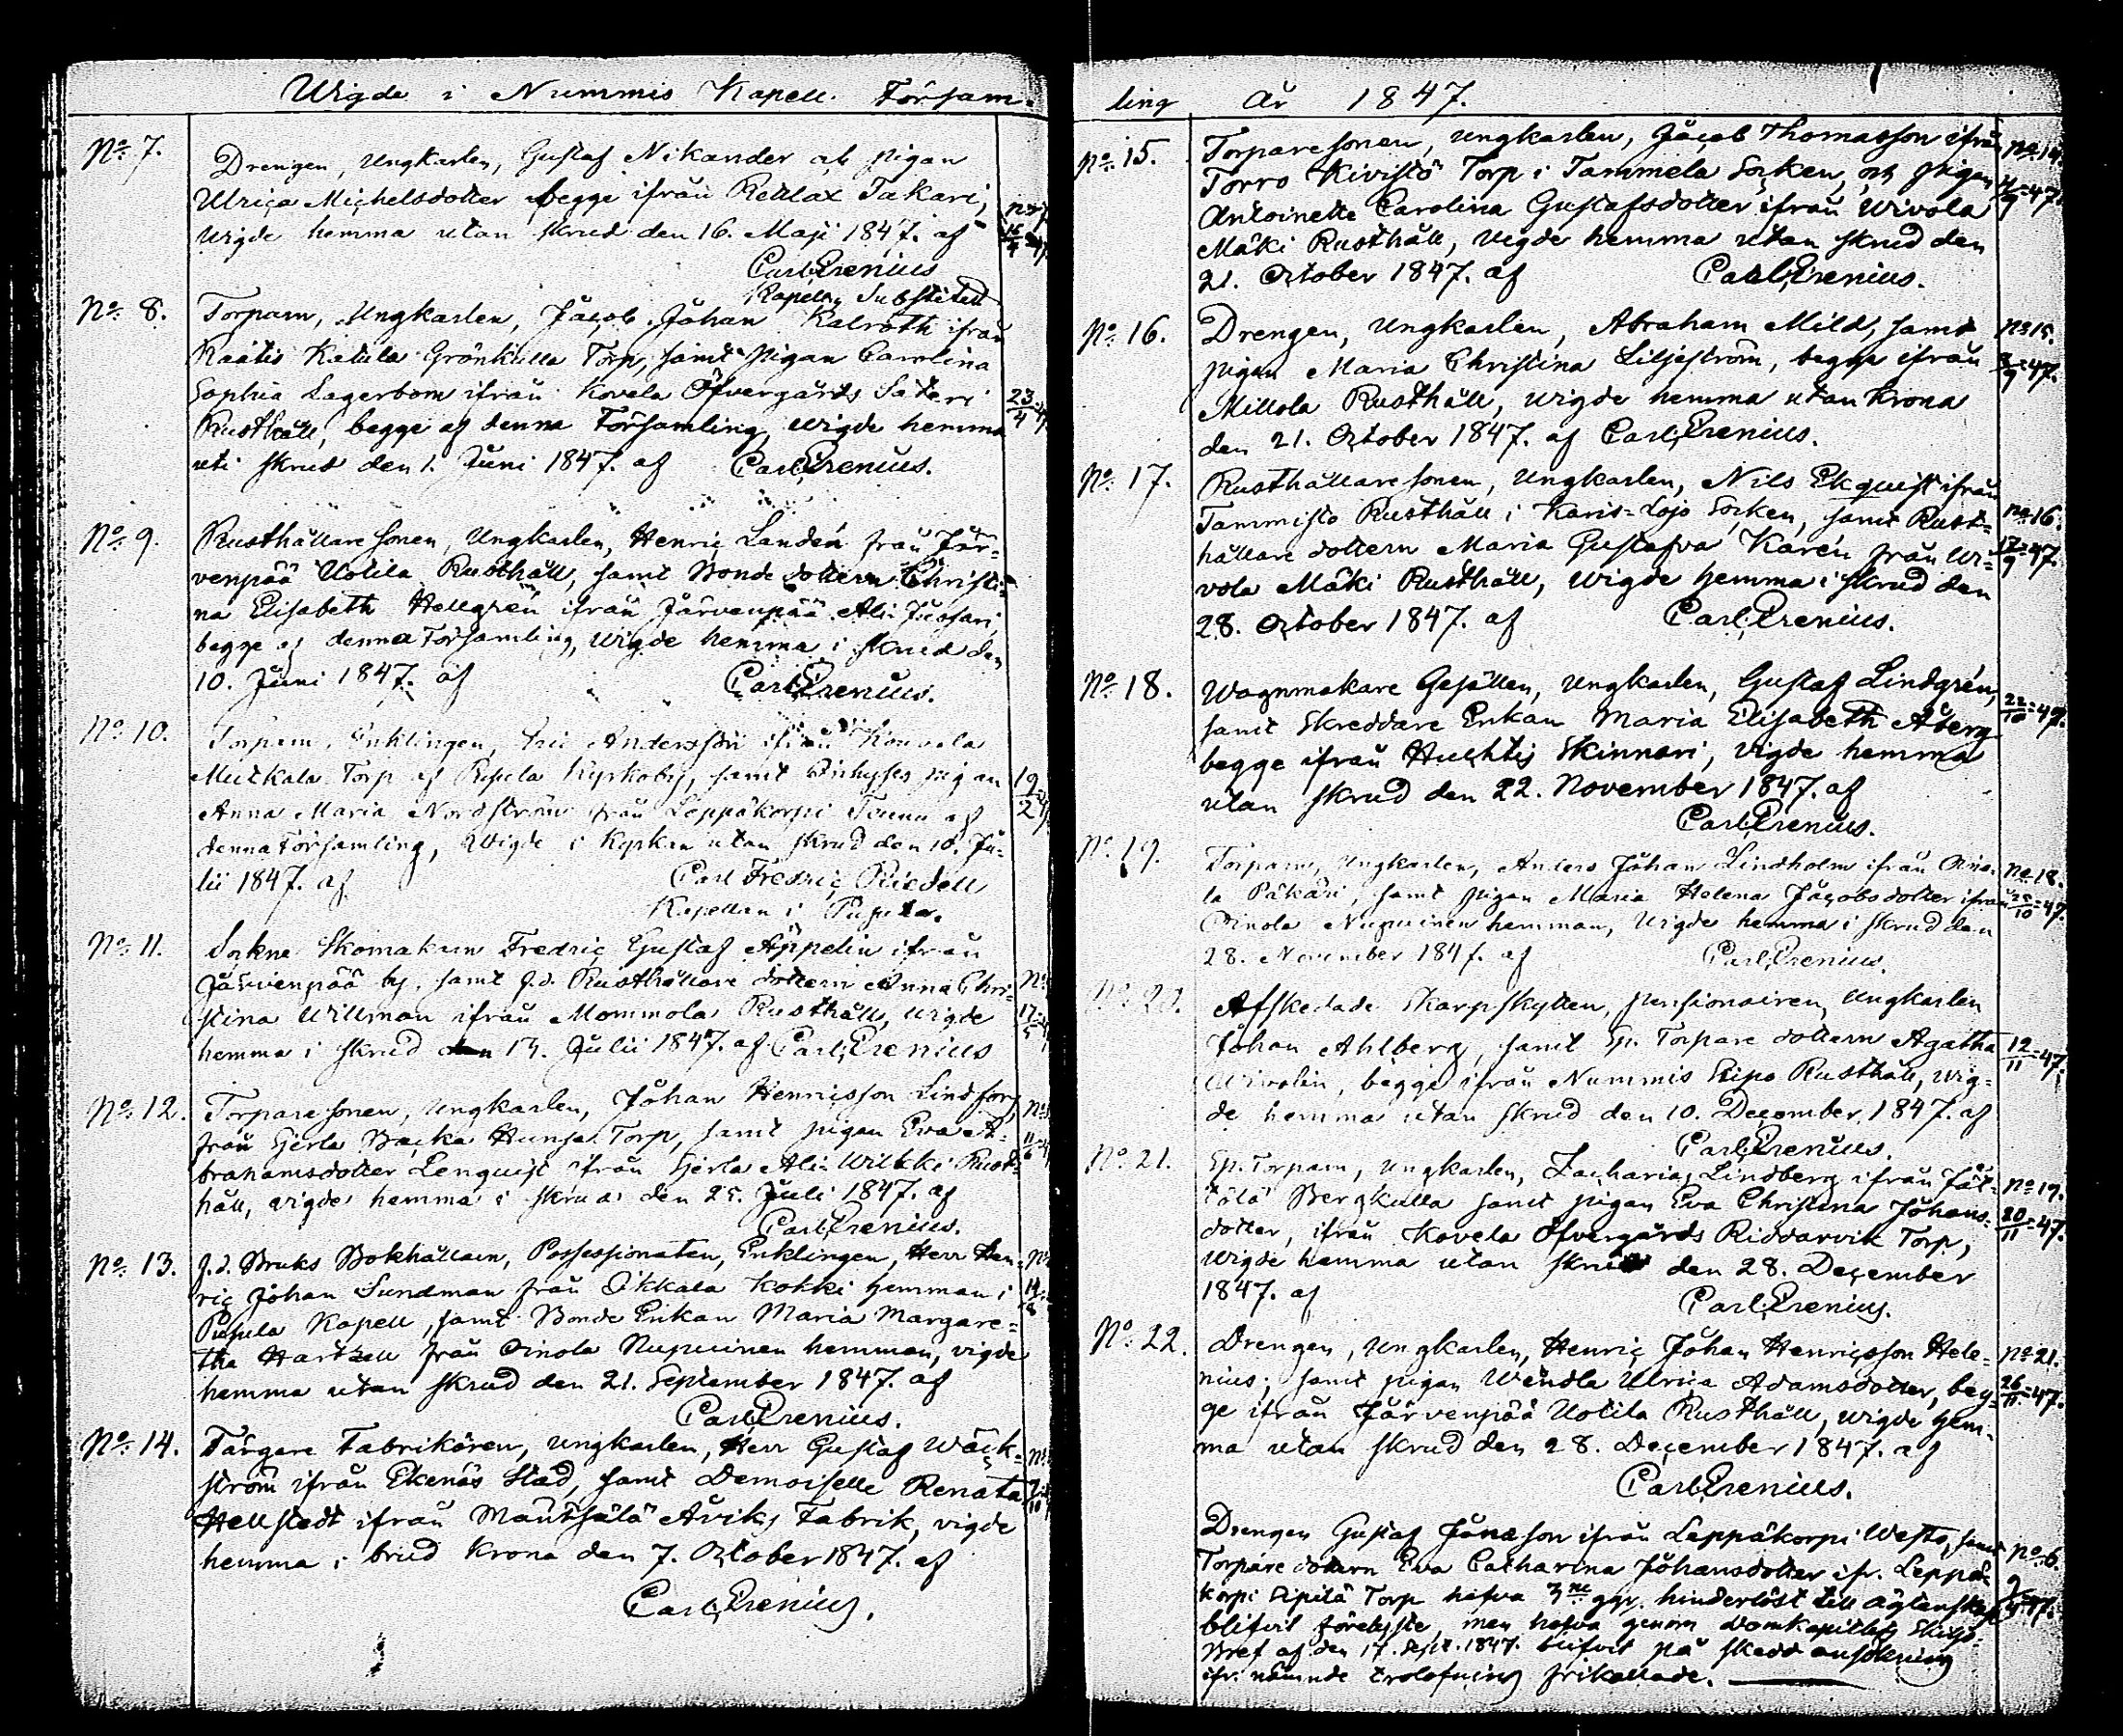 Wigde i Nummis Kapell Försam-
No. 7.
Drengen, Ungkarlen, Gustaf Nikander ock pigan
Ulrica Michelsdotter begge ifrån Retlax Takari,
wigde hemma utan skrud den 16. Maji 1847. af
Carl Grenius
Kapellans Substitut
No. 8.
Torparn, Ungkarlen, Jacob Johan Kalroth ifrån
Raatis Katula Grönkulla Torp, samt pigan Carolina
Sophia Lagerbom ifrån Kovela Öfvergårds Säteri
Rusthåll, begge af denna Församling, wigde hemma
uti skrud den 1. Juni 1847. af Carl Grenius.
23/4
No. 9.
Rusthållare sonen, Ungkarlen, Henric Landén från Jär-
venpää Uotila Rusthåll, samt Bonde dottern Christi-
na Elisabeth Hellgrén ifrån Järvenpää Ali Jussari,
begge af denna Församling, wigde hemma i skrud den
10. Juni 1847. af Carl Grenius.
No. 10.
Torparn, Enklingen, Eric Andersson ifrån
Torp af Pusula Kyrkoby, samt pigan
Anna Maria Nordström från Leppäkorpi af
denna Församling, Wigde i Kyrkan utan skrud den 10. Ju-
lii 1847. af Carl Fredric Riedell
Kapellan i Pusula.
19/2
No. 11.
Sokne Skomakarn Fredric Gustaf Appelin ifrån
Järvenpää by, samt f.d. Rusthållare dottern Anna Chri-
stina Willman ifrån Mommola Rusthåll, wigde
hemma i skrud den 13. Julii 1847. af Carl Grenius
No. 12.
Torpare sonen, Ungkarlen, Johan Henrisson Lindfors
från Gerla Backa Hunsa Torp, samt pigan Eva A-
brahamsdotter Lenquist ifrån Gerla Ali Wilkki Rust-
håll, vigde hemma i skrud den 25. Juli 1847. af
Carl Grenius.
No. 13.
f.d. Bruks Bokhållarn, Possessionaten, Enklingen, Herr Hen-
ric Johan Sundman från Oikkala Kokki hemman i
Pusula Kapell, samt Bonde Enkan Maria Margare-
tha Hartzell från Oinola Nupuinen hemman, vigde
hemma utan skrud den 21. September 1847. af
Carl Grenius.
No. 14.
Färgare Fabrikören, Ungkarlen, Herr Gustaf Wäck-
ström ifrån Ekenäs Stad, samt Demoiselle Renata
Hellstedt ifrån Mäntsälä Åviks Fabrik, vigde
hemma i brud Krona den 7. October 1847. af
Carl Grenius.
ling år 1847.
No. 15.
Torpare sonen, Ungkarlen, Jacob Thomasson ifrån
Torro Kivistö Torp i Tammela Socken, ock pigan
Antoinette Carolina Gustafsdotter ifrån Wivola
Mäki Rusthåll, vigde hemma utan skrud den
21. October 1847. af Carl Grenius.
No 14.
No. 16.
Drengen, Ungkarlen, Abraham Mild, samt
pigan Maria Christina Liljeström, begge ifrån
Millola Rusthåll, wigde hemma utan Krona
den 21. October 1847. af Carl Grenius.
No 15.
No. 17.
Rusthållare sonen, Ungkarlen, Nils Ekquist ifrån
Tammisto Rusthåll i Karis-Lojo Socken, samt Rust-
hållare dottern Maria Gustafva Karén från Wi-
vola Mäki Rusthåll, Wigde hemma i skrud den
28. October 1847. af Carl Grenius.
No 16.
17/9 47.
No. 18.
Wagnmakare Gesällen, Ungkarlen, Gustaf Lindgrén,
samt Skreddare Enkan Maria Elisabeth Åberg
begge ifrån Huhtis Skinnari, vigde hemma
utan skrud den 22. November 1847. af
Carl Grenius.
22/10 47.
No. 19.
Torparn, Ungkarlen, Anders Johan Lindholm ifrån Oino-
la Päkäri, samt pigan Maria Helena Jacobsdotter ifrån
Oinola Nupuinen hemman, Wigde hemma i skrud den
28. November 1847. af Carl Grenius.
No 18.
No. 20.
Afskedade Skarpskytten, pensionairen, Ungkarlen
Johan Ahlberg, samt Ep. Torpare dottern Agatha
Wivolin, begge ifrån Nummis Eripo Rusthåll, wig-
de hemma utan skrud den 10. December 1847. af
Carl Grenius.
12/11 47.
No. 21.
Ep. Torparn, Ungkarlen, Zacharias Lindberg ifrån Jät-
tölä Bergkulla samt pigan Eva Christina Johans-
dotter, ifrån Kovela Öfvergårds Riddarvik Torp,
Wigde hemma utan skrud den 28. December
1847. af Carl Grenius.
No 19.
20/11 47.
No. 22.
Drengen, Ungkarlen, Henric Johan Henricsson Hele-
nius, samt pigan Wendla Ulrica Adamsdotter, beg-
ge ifrån Järvenpää Uotila Rusthåll, wigde hem-
ma utan skrud den 28. December 1847. af
Carl Grenius.
No 21.
26/11 47.
Drengen Gustaf Jonasson ifrån Leppäkorpi Westo, samt
Torpare dottern Eva Catharina Johansdotter ifr. Leppä-
korpi Sipilä Torp hafva 3ne ggr. hinderlöst till ägtenskap
blifvit förelyste, men hafva genom Domkapitlets Skiljo-
Bref af den 17. Sept. 1847. blifvit på skedd ansökning
ifr. nämnde trolofning frikallade.
No 6.